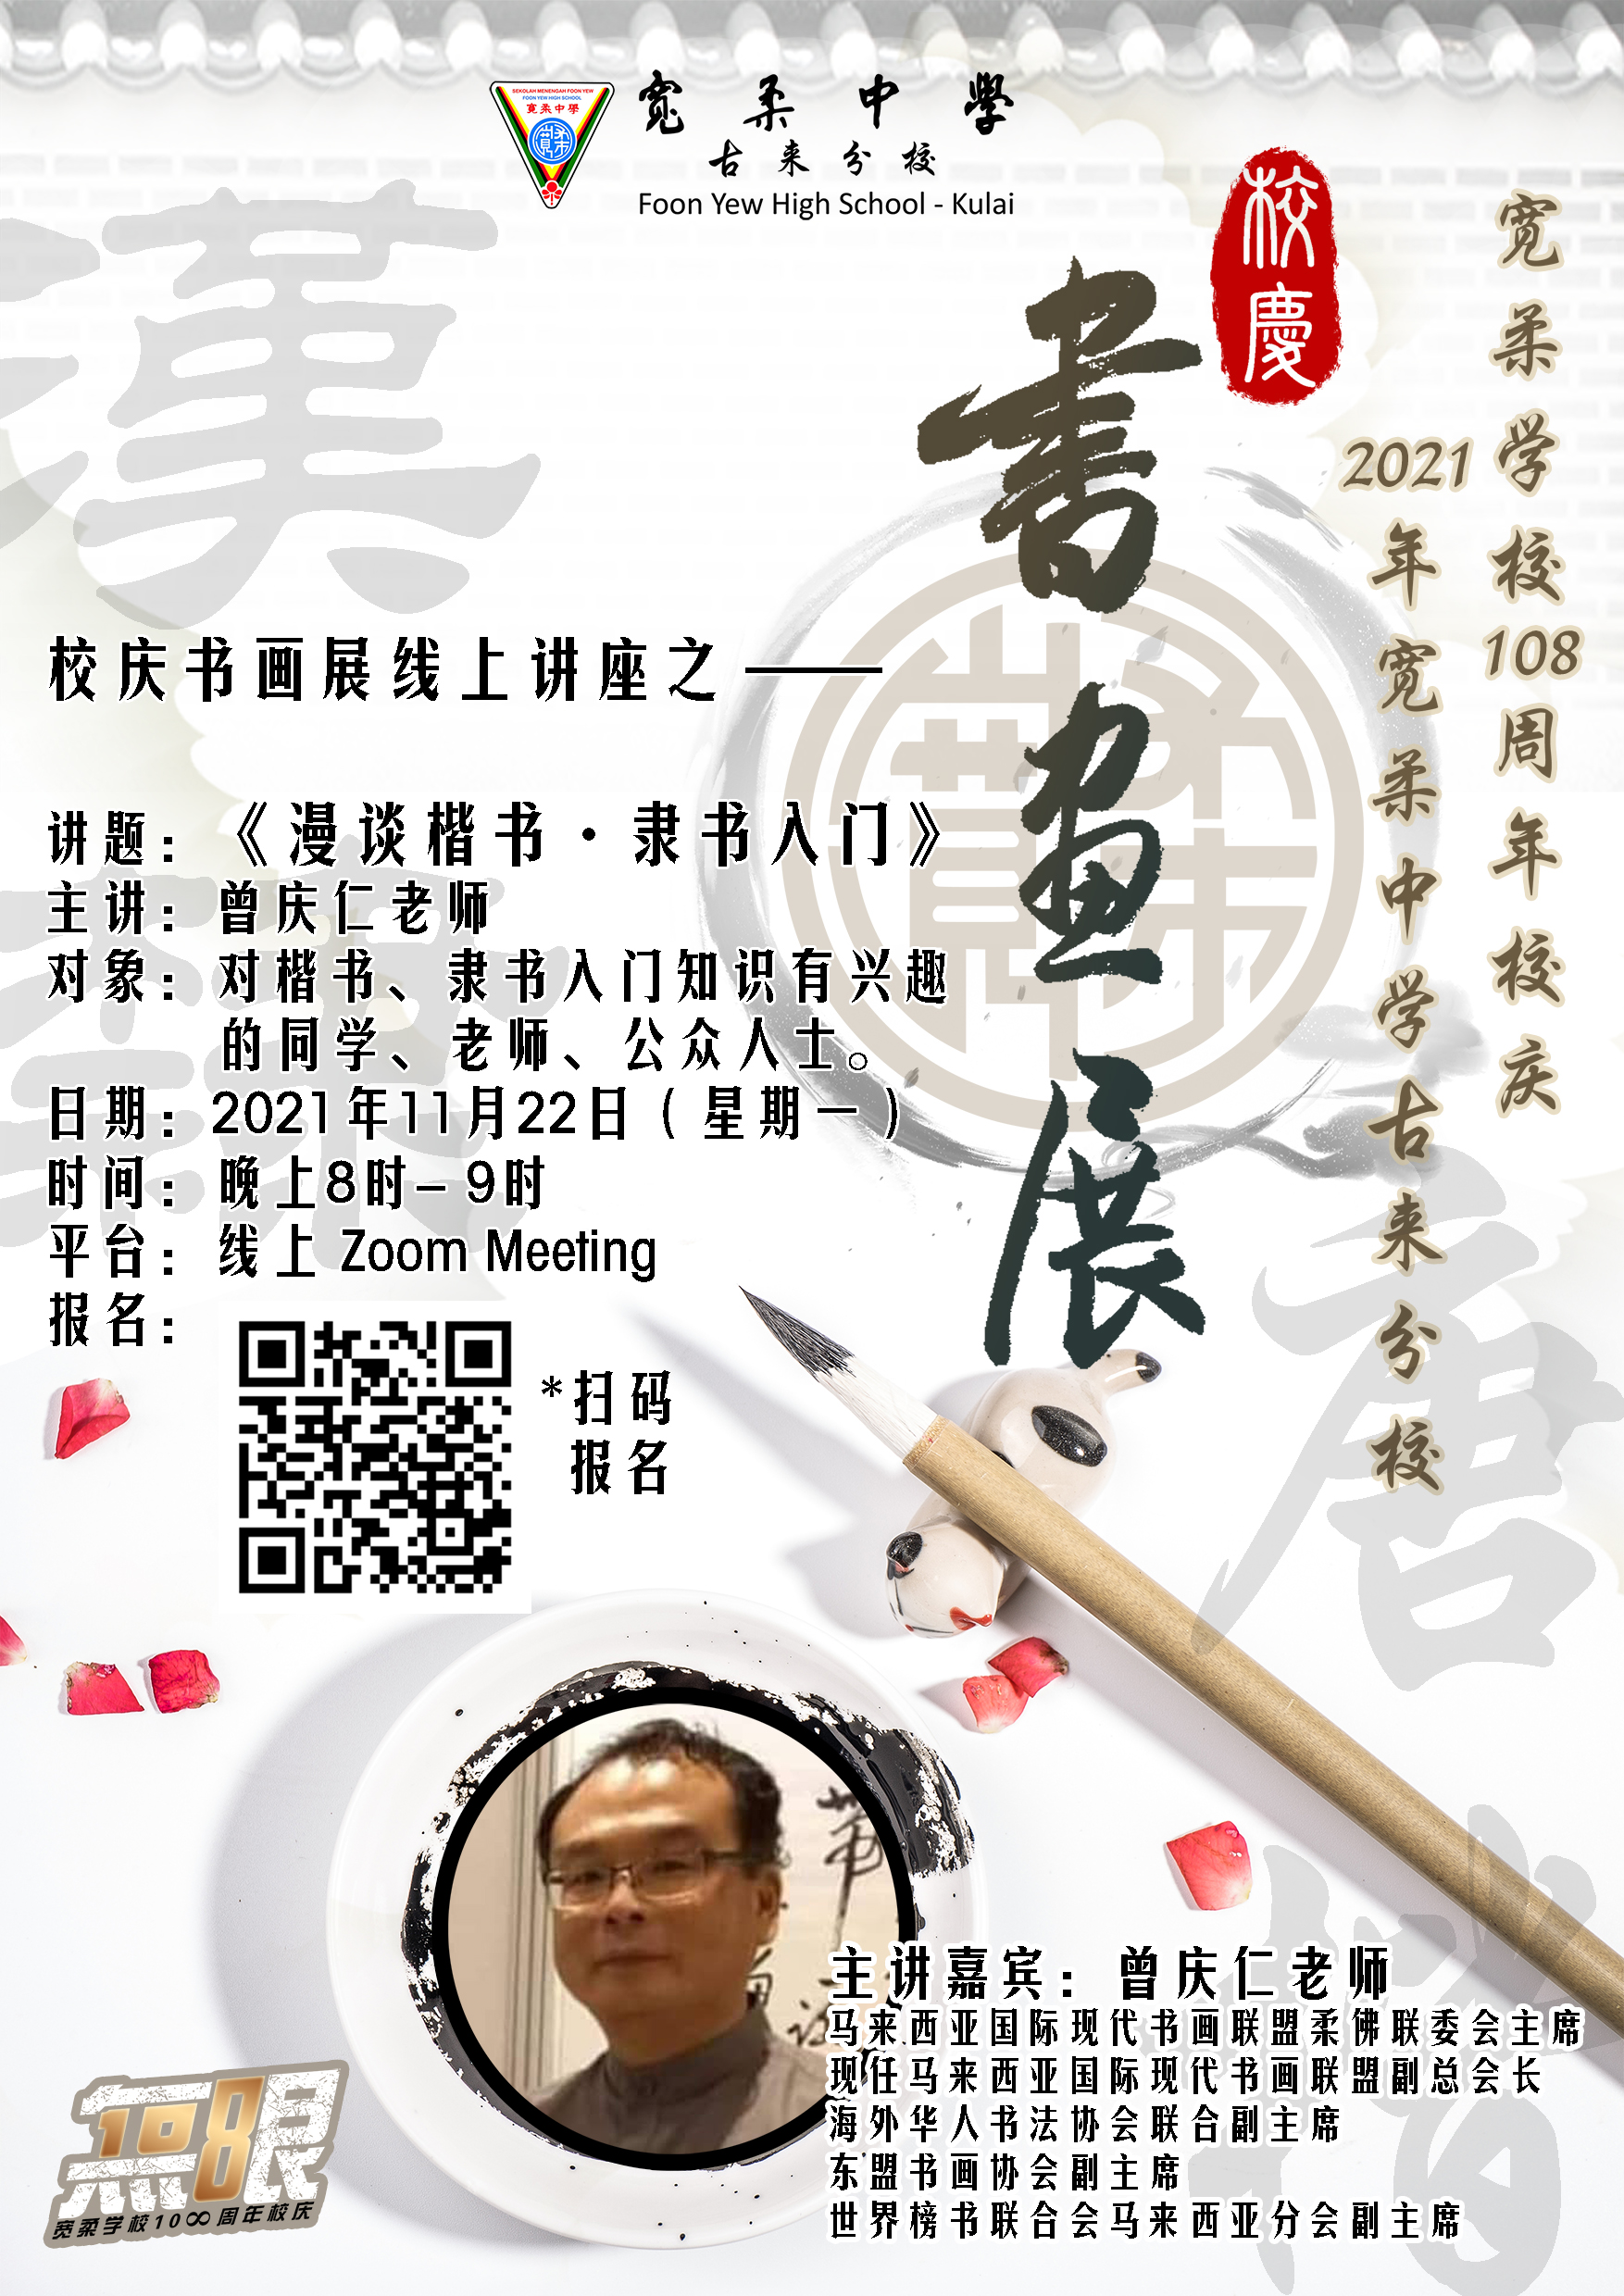 SEKOLAH MENENGAH FOON YEW
FOON YEW HIGH SCHOOL
寬柔中學
寬柔中學
古来分校
Foon Yew High School - Kulai
校慶
書畫展
宽柔学校108周年校庆
2021年宽柔中学古来分校
漢
隸
唐
楷
校庆书画展线上讲座之——
讲题：《漫谈楷书·隶书入门》
主讲：曾庆仁老师
对象：对楷书、隶书入门知识有兴趣
的同学、老师、公众人士。
日期：2021年11月22日（星期一）
时间：晚上8时– 9时
平台：线上 Zoom Meeting
报名：
*扫码
报名
主讲嘉宾：曾庆仁老师
马来西亚国际现代书画联盟柔佛联委会主席
现任马来西亚国际现代书画联盟副总会长
海外华人书法协会联合副主席
东盟书画协会副主席
世界榜书联合会马来西亚分会副主席
無限
108
宽柔学校10∞周年校庆